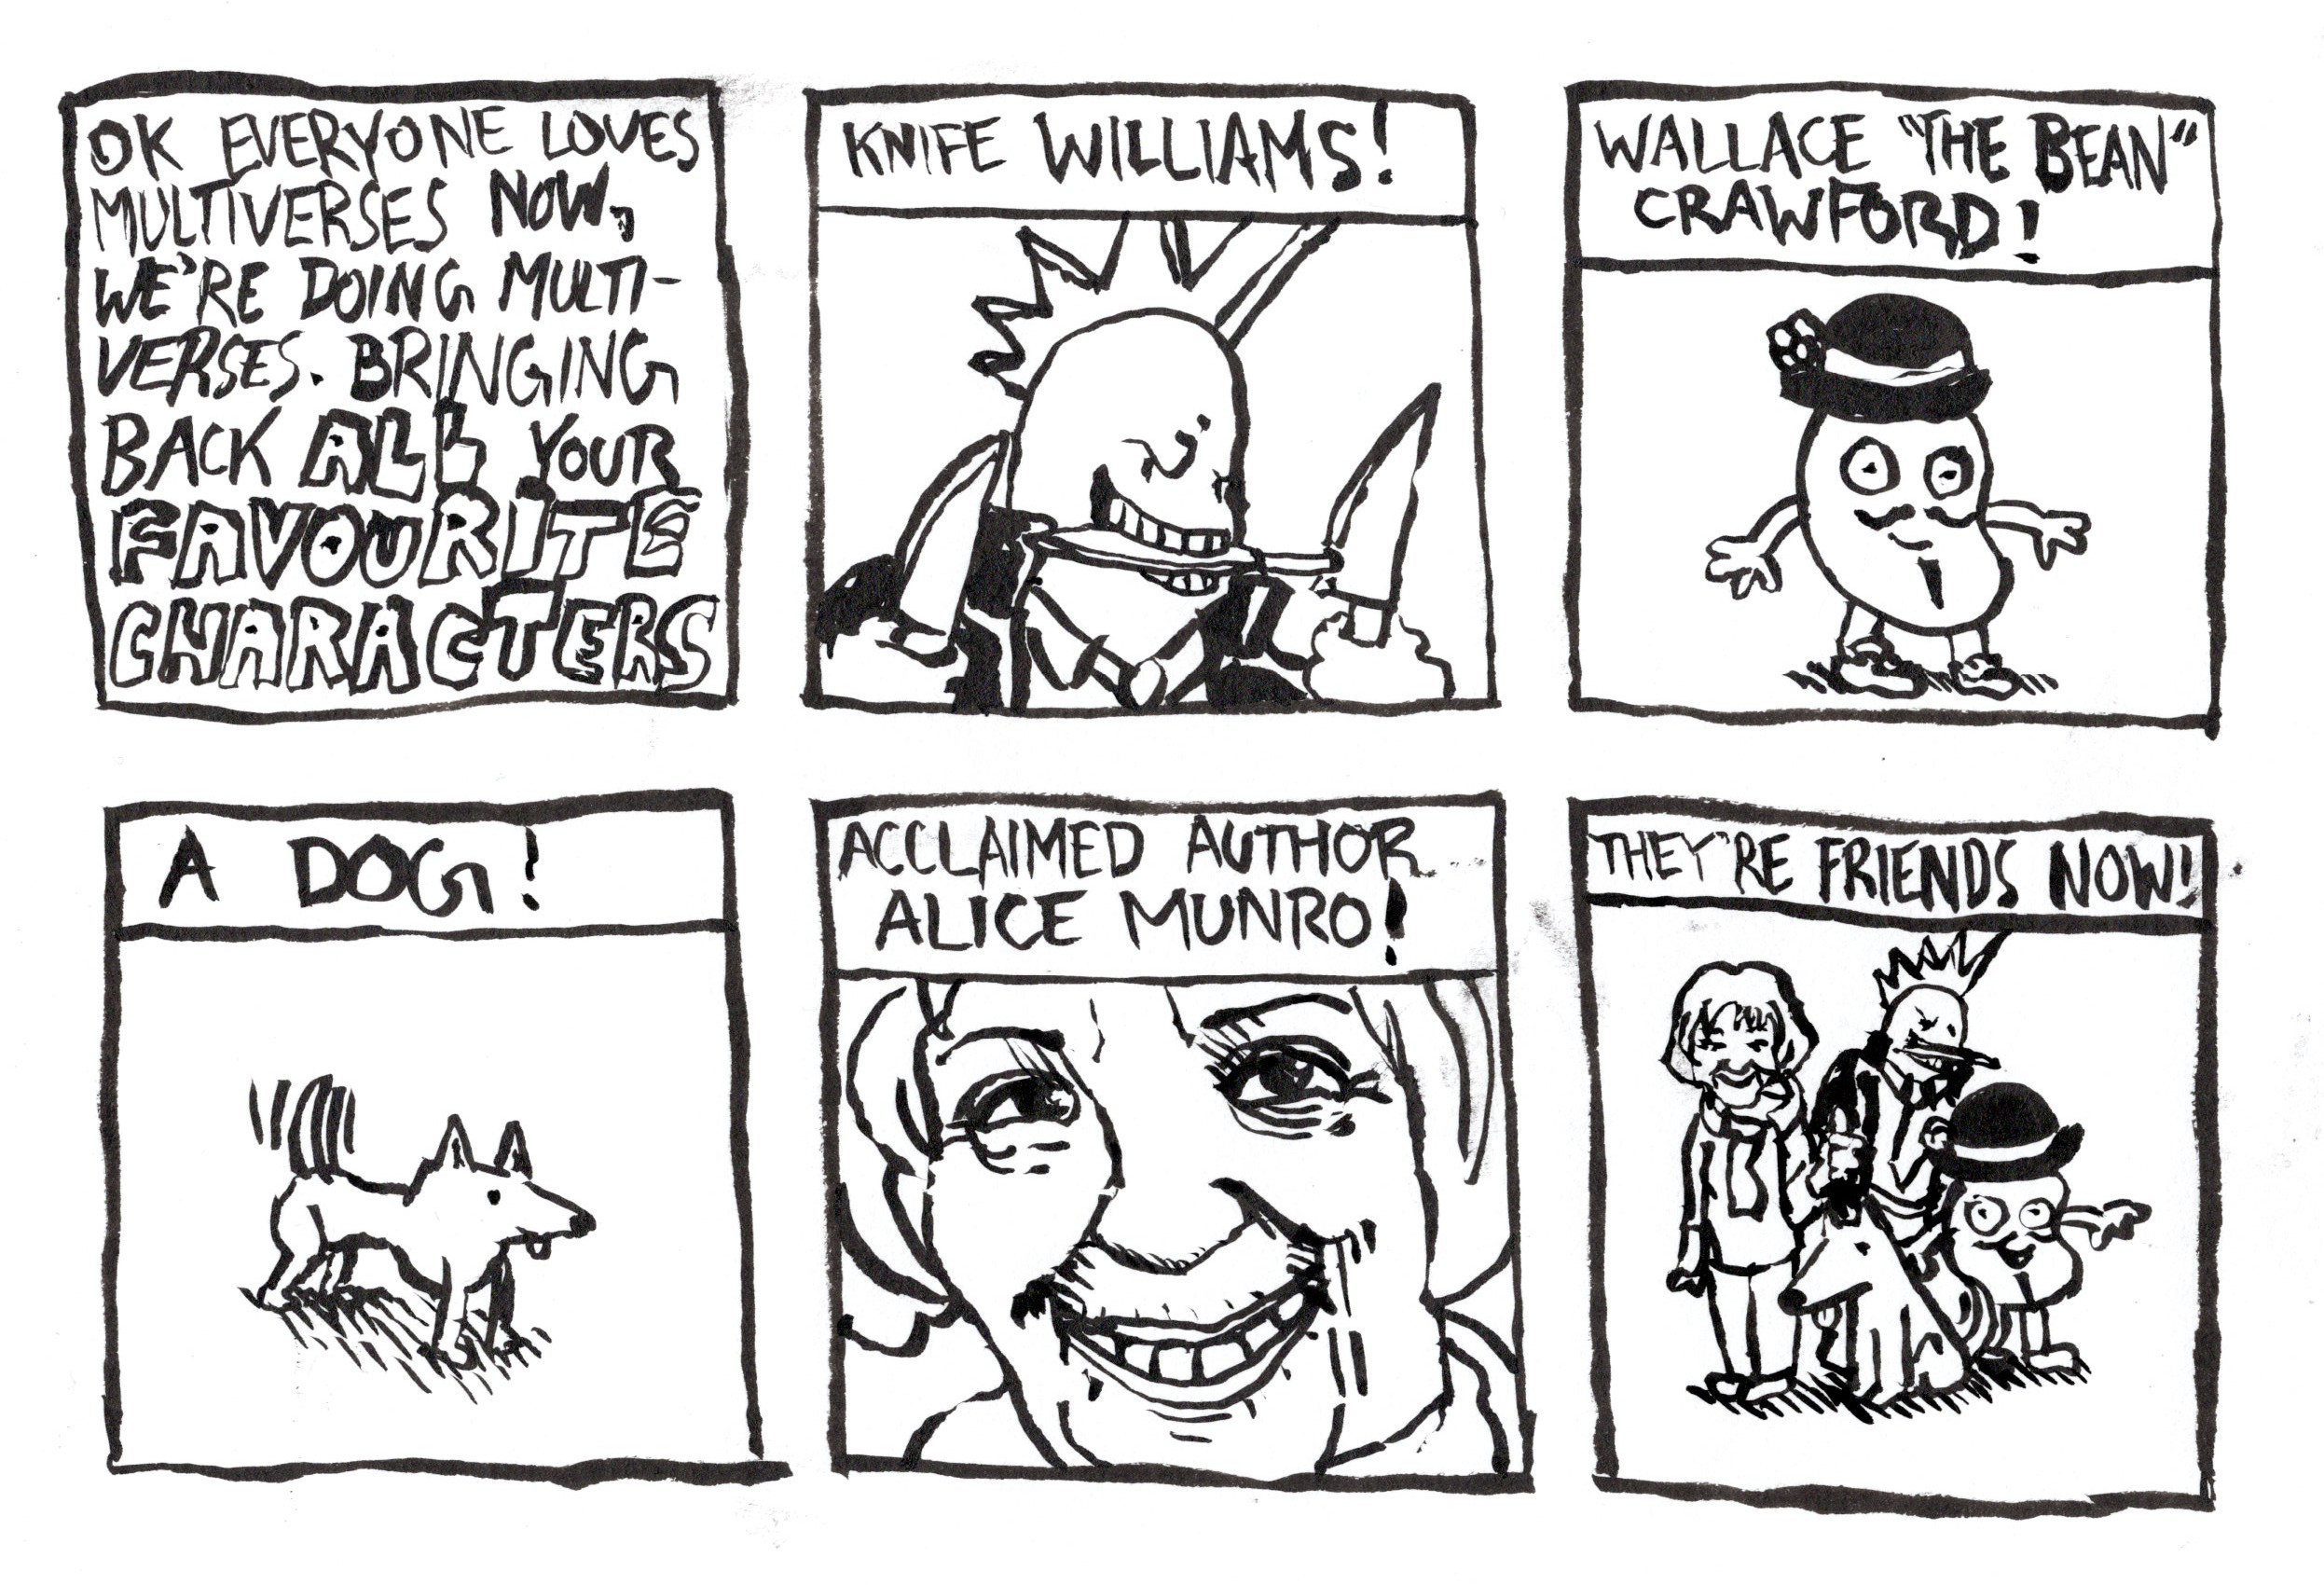 OK EVERYONE LOVES
MULTIVERSES NOW,
WE'RE DOING MULTI-
VERSES. BRINGING
BACK ALL YOUR
FAVOURITE
CHARACTERS
KNIFE WILLIAMS!
WALLACE "THE BEAN"
CRAWFORD!
A DOG!
ACCLAIMED AUTHOR
ALICE MUNRO!
THEY'RE FRIENDS NOW!